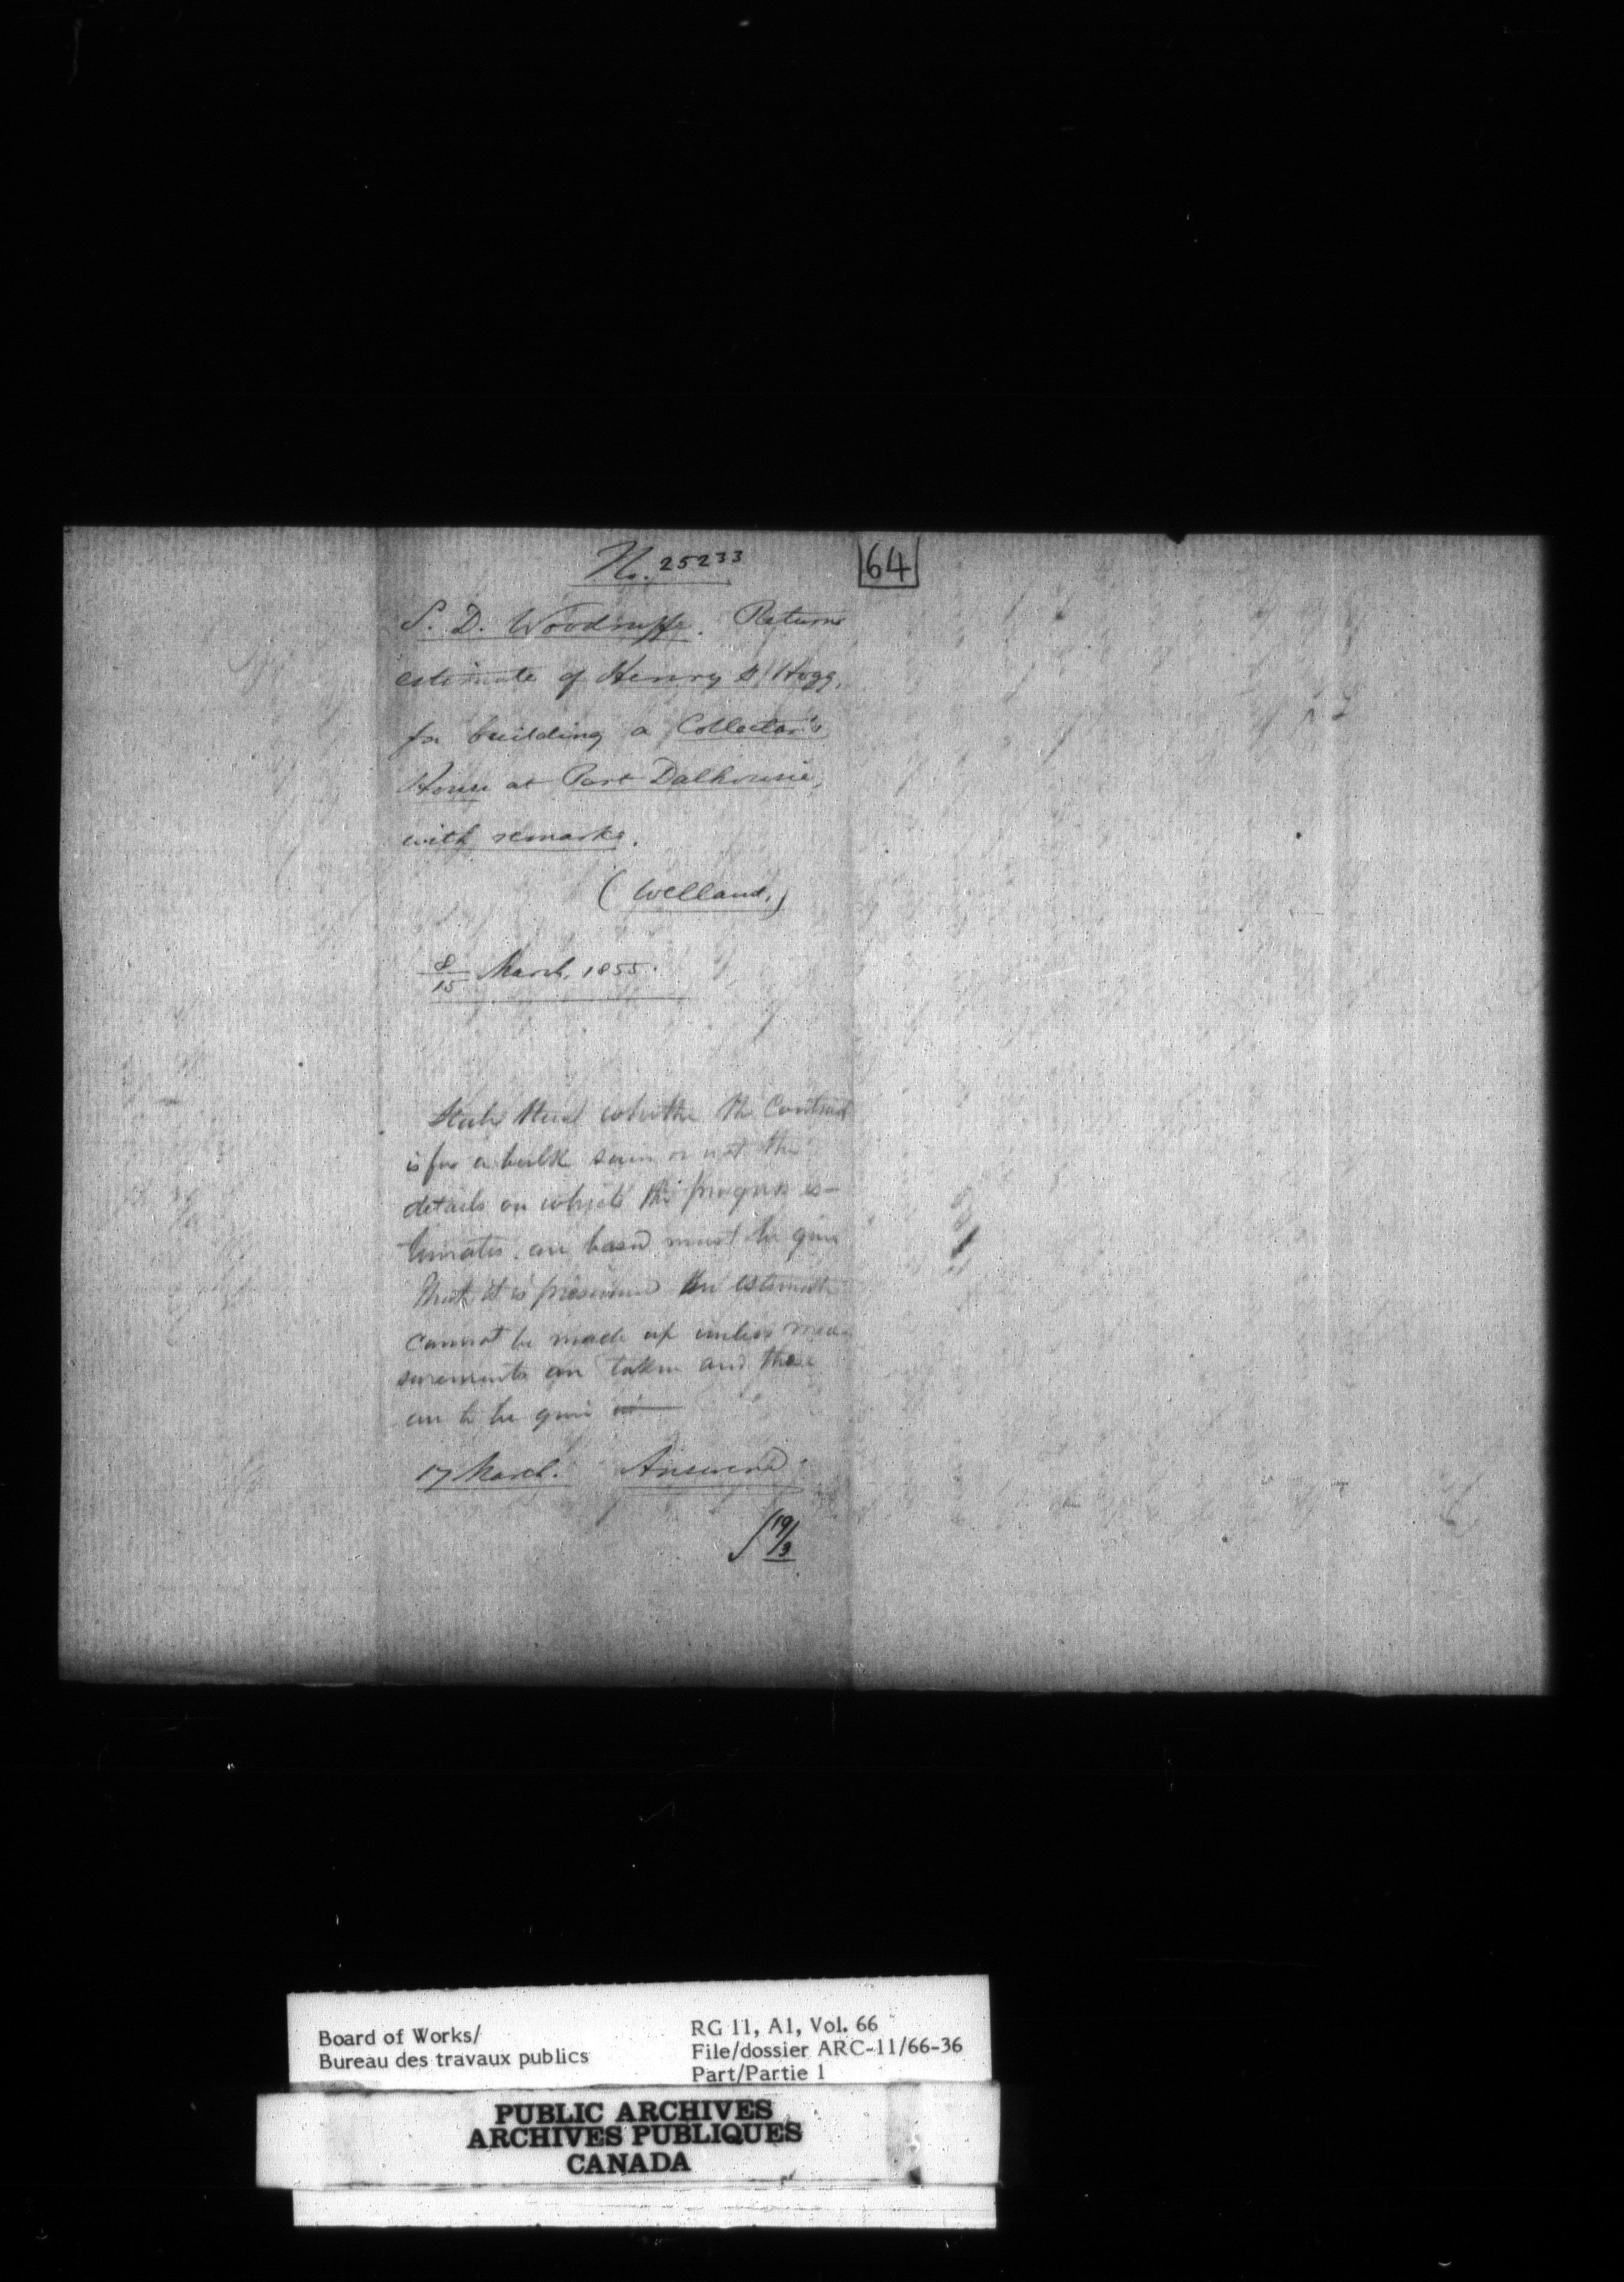 No. 25233
64
S. D. Woodruffe. Returns
estimate of Henry & Hogg,
for building a Collector's
House at Port Dalhousie,
with remarks.
(Welland.)
8/15 March, 1855.
State that whether the Contract
is for a bulk sum or not the
details on which the progress es-
timates are based must be given
that it is presumed the estimate
cannot be made up unless mea-
surements are taken and these
are to be given
17 March. Answered
19/3
Board of Works/
Bureau des travaux publics
RG 11, A1, Vol. 66
File/dossier ARC-11/66-36
Part/Partie 1
PUBLIC ARCHIVES
ARCHIVES PUBLIQUES
CANADA